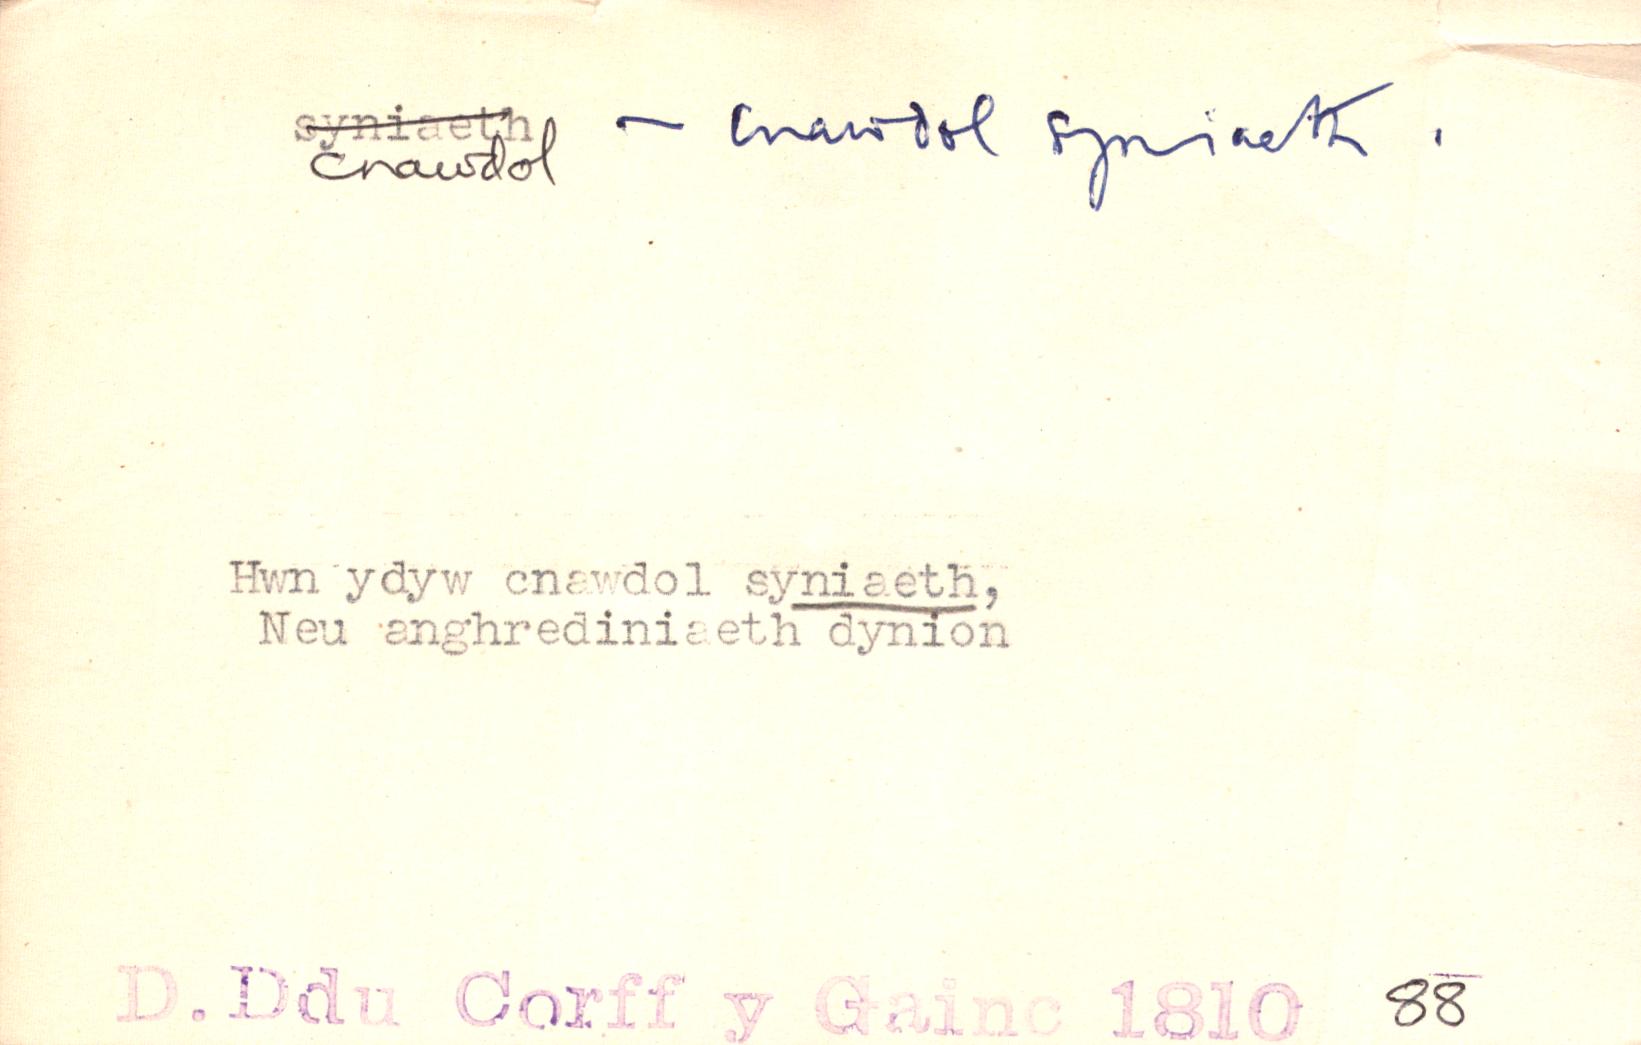 syniaeth — cnawdol syniaeth.
cnawdol
Hwn ydyw cnawdol syniaeth,
Neu anghrediniaeth dynion
D.Ddu Corff y Gainc 1810 88